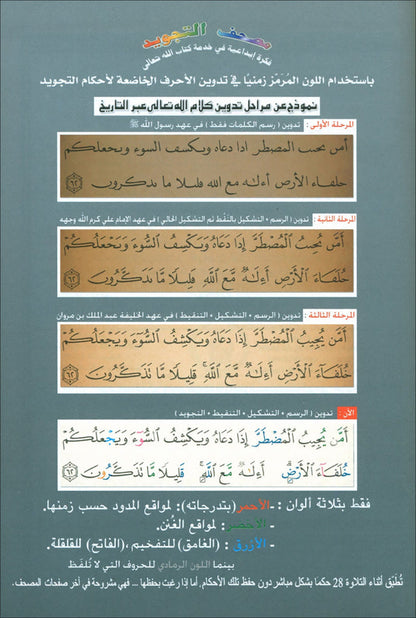 مصحف التجويد
فكرة إبداعية في خدمة كتاب الله تعالى
باستخدام اللون المُرَمّز زمنيًا في تدوين الأحرف الخاضعة لأحكام التجويد
نموذج عن مراحل تدوين كلام الله تعالى عبر التاريخ
المرحلة الأولى: تدوين (رسم الكلمات فقط) في عهد رسول الله ﷺ
امن يجيب المضطر اذا دعاه ويكشف السوء ويجعلكم
خلفاء الأرض أءله مع الله قليلا ما تذكرون ٦٢
المرحلة الثانية: تدوين (الرسم + التشكيل بالنقط ثم التشكيل الحالي) في عهد الإمام علي كرم الله وجهه
أَمَّن يُجِيبُ ٱلْمُضْطَرَّ إِذَا دَعَاهُ وَيَكْشِفُ ٱلسُّوٓءَ وَيَجْعَلُكُمْ
خُلَفَآءَ ٱلْأَرْضِ أَءِلَٰهٌ مَّعَ ٱللَّهِ قَلِيلًا مَّا تَذَكَّرُونَ ٦٢
المرحلة الثالثة: تدوين (الرسم + التشكيل + التنقيط) في عهد الخليفة عبد الملك بن مروان
أَمَّن يُجِيبُ ٱلْمُضْطَرَّ إِذَا دَعَاهُ وَيَكْشِفُ ٱلسُّوٓءَ وَيَجْعَلُكُمْ
خُلَفَآءَ ٱلْأَرْضِ أَءِلَٰهٌ مَّعَ ٱللَّهِ ۚ قَلِيلًا مَّا تَذَكَّرُونَ ٦٢
الآن: تدوين (الرسم + التشكيل + التنقيط + التجويد)
أَمَّن يُجِيبُ ٱلْمُضْطَرَّ إِذَا دَعَاهُ وَيَكْشِفُ ٱلسُّوٓءَ وَيَجْعَلُكُمْ
خُلَفَآءَ ٱلْأَرْضِ ۗ أَءِلَٰهٌ مَّعَ ٱللَّهِ ۚ قَلِيلًا مَّا تَذَكَّرُونَ ٦٢
فقط بثلاثة ألوان: - الأحمر (بتدرجاته): لمواقع المدود حسب زمنها.
- الأخضر: لمواقع الغُنن.
- الأزرق: (الغامق) للتفخيم، (الفاتح) للقلقلة.
بينما اللون الرمادي للحروف التي لا تُلفظ
تُطبّق أثناء التلاوة 28 حكمًا بشكل مباشر دون حفظ تلك الأحكام، أما إذا رغبت بحفظها ... فهي مشروحة في آخر صفحات المصحف.